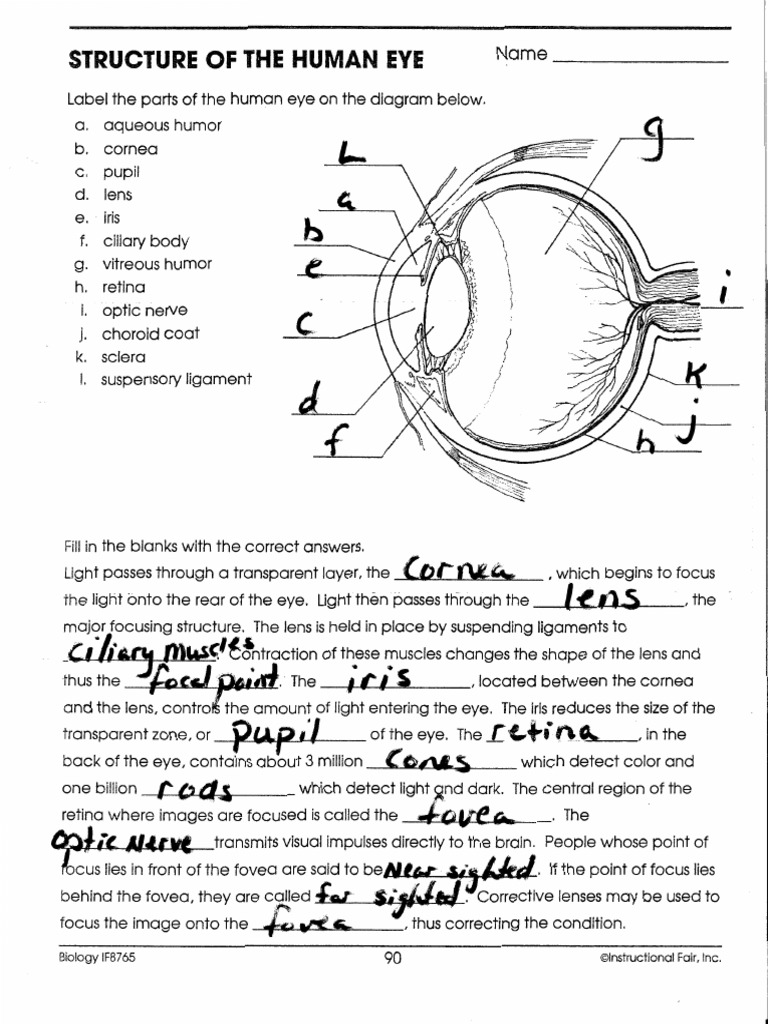 STRUCTURE OF THE HUMAN EYE Name
Label the parts of the human eye on the diagram below.
a. aqueous humor
b. cornea
c. pupil
d. lens
e. iris
f. ciliary body
g. vitreous humor
h. retina
i. optic nerve
j. choroid coat
k. sclera
l. suspensory ligament
L
a
b
e
c
d
f
g
i
K
j
h
Fill in the blanks with the correct answers.
Light passes through a transparent layer, the Cornea, which begins to focus
the light onto the rear of the eye. Light then passes through the lens, the
major focusing structure. The lens is held in place by suspending ligaments to
Ciliary Muscles. Contraction of these muscles changes the shape of the lens and
thus the focal point. The iris, located between the cornea
and the lens, controls the amount of light entering the eye. The iris reduces the size of the
transparent zone, or pupil of the eye. The retina, in the
back of the eye, contains about 3 million Cones which detect color and
one billion rods which detect light and dark. The central region of the
retina where images are focused is called the fovea. The
Optic Nerve transmits visual impulses directly to the brain. People whose point of
focus lies in front of the fovea are said to be Near sighted. If the point of focus lies
behind the fovea, they are called far sighted. Corrective lenses may be used to
focus the image onto the fovea, thus correcting the condition.
Biology IF8765 90 ©Instructional Fair, Inc.